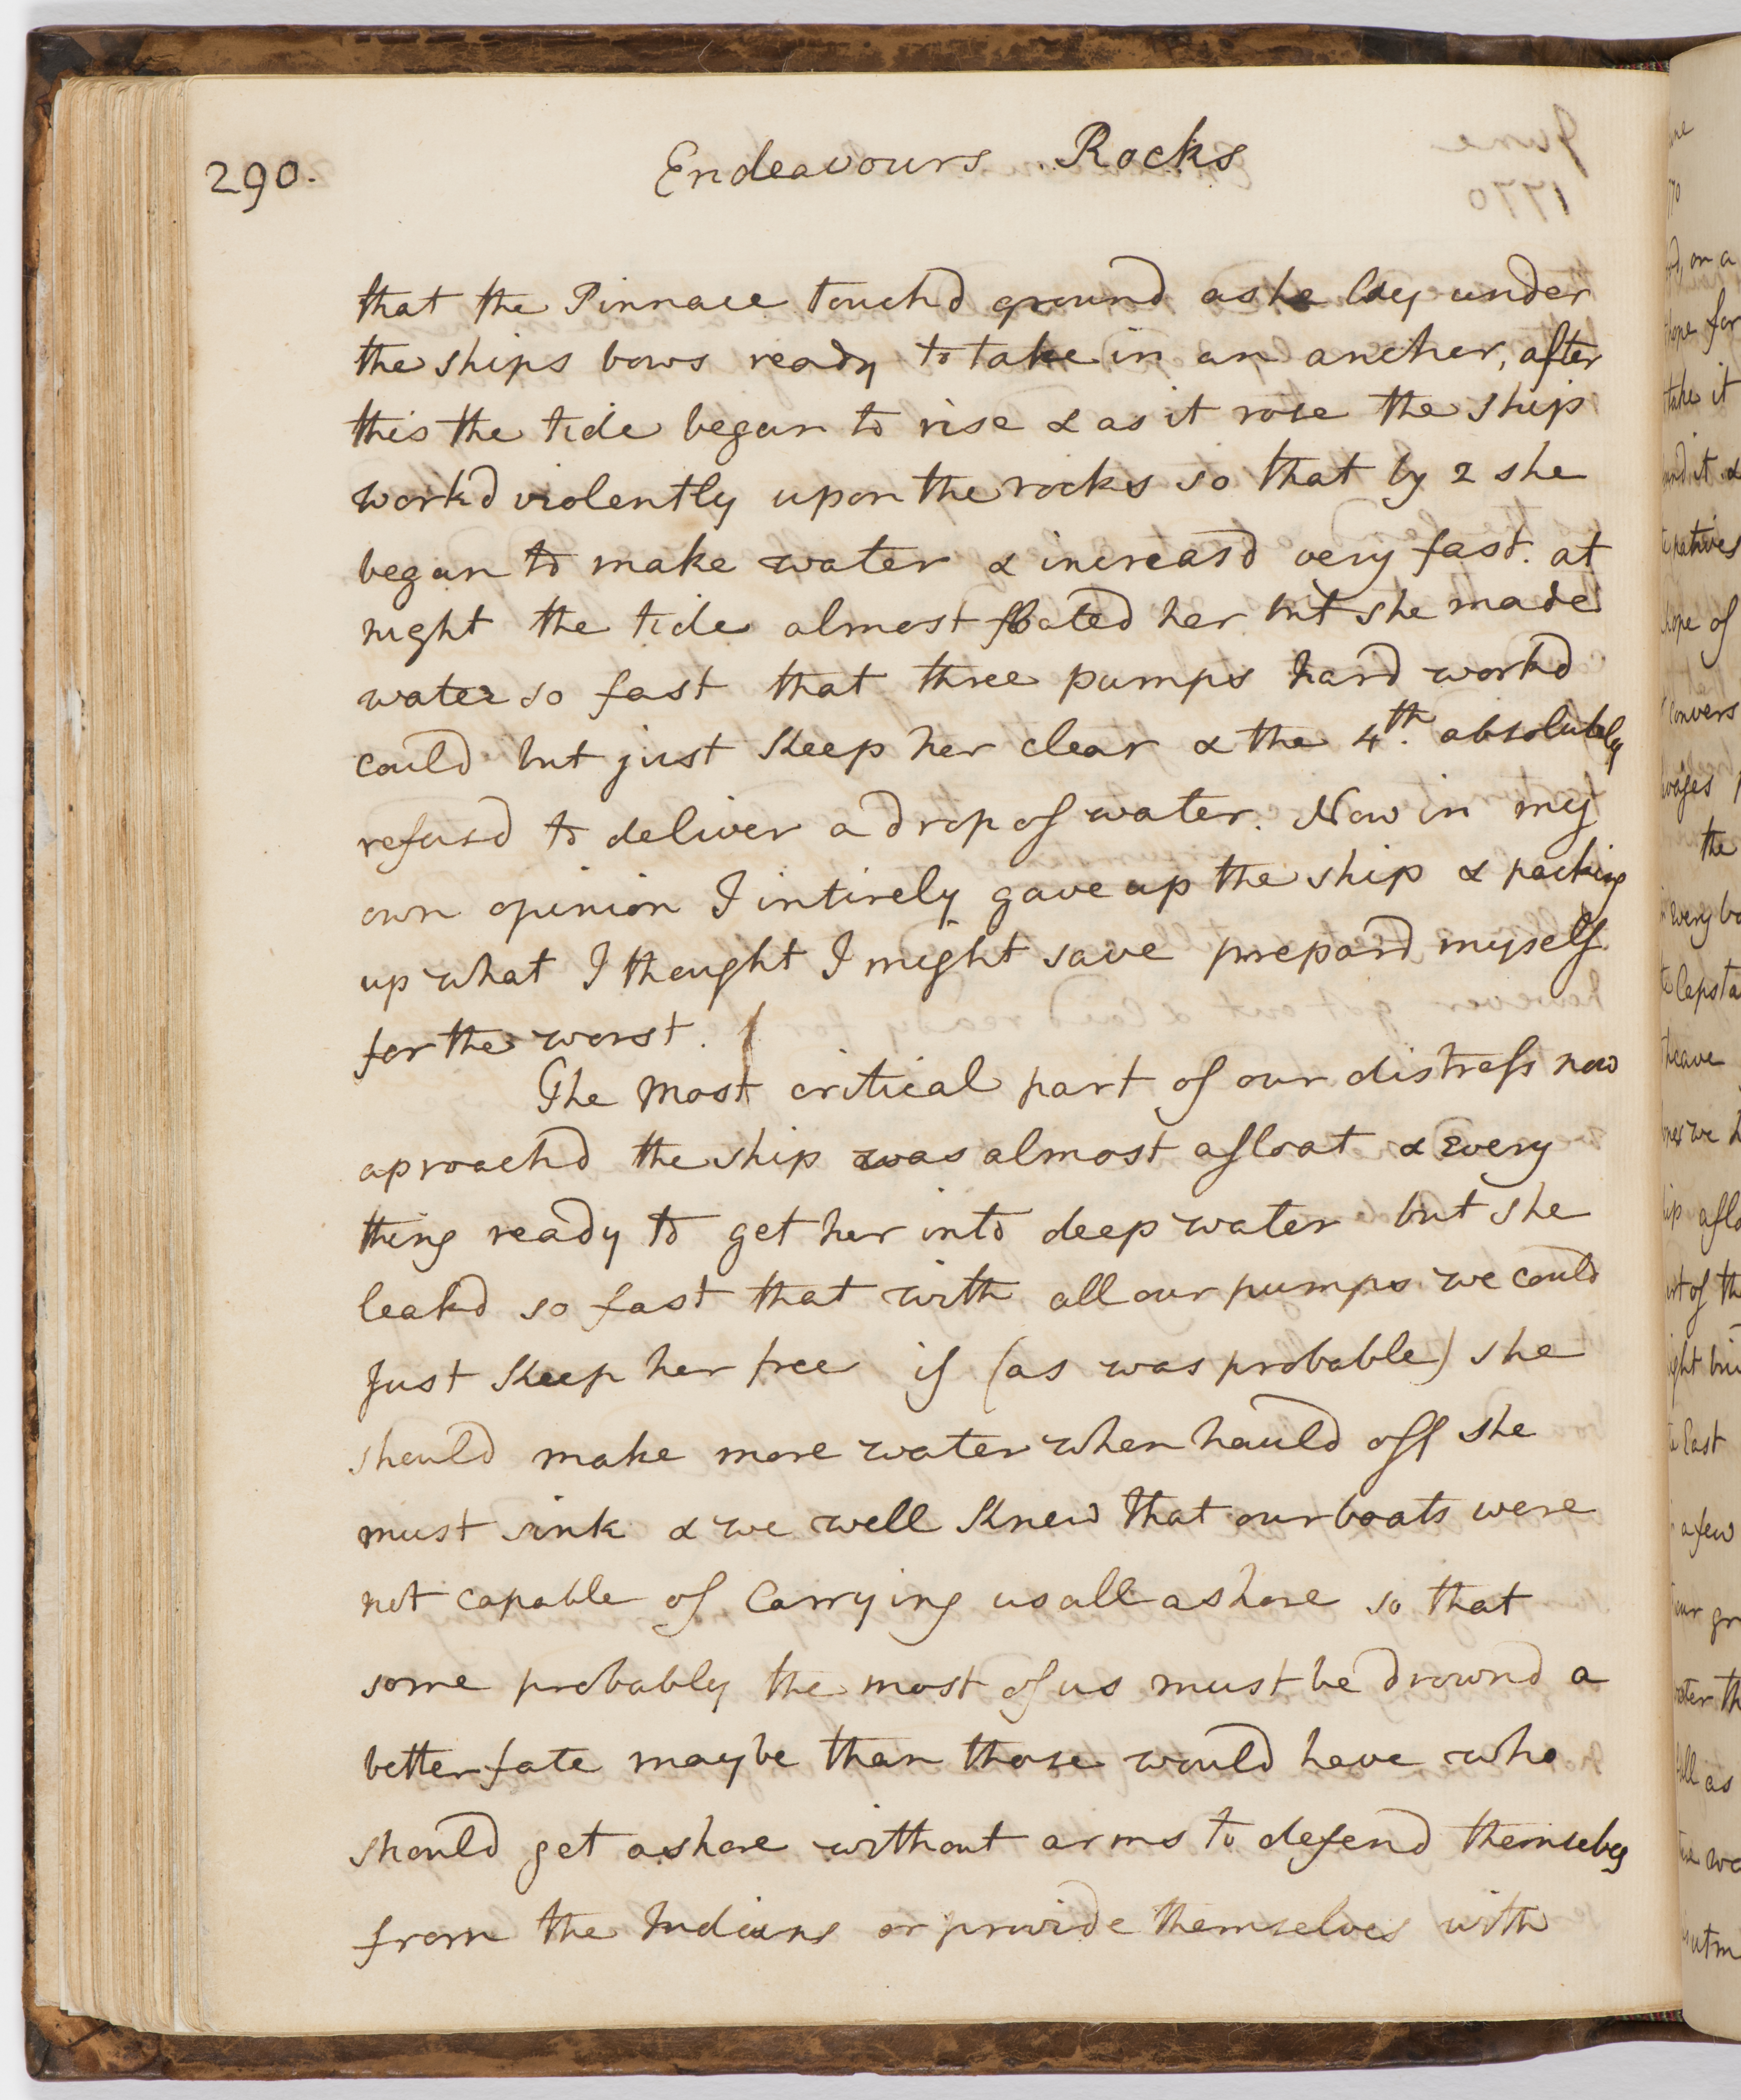 290.
Endeavours Rocks
that the Pinnace touchd ground as he lay under
the ships bows ready to take in an ancher, after
this the tide began to rise & as it rose the ship
workd violently upon the rocks so that by 2 she
began to make water & increasd very fast. at
night the tide almost floated her but she made
water so fast that three pumps hard workd
could but just keep her clear & the 4th. absolutely
refusd to deliver a drop of water. Now in my
own opinion I intirely gave up the ship & packing
up what I thought I might save prepard myself
for the worst.
The most critical part of our distress now
aproachd the ship was almost afloat & every
thing ready to get her into deep water but she
leakd so fast that with all our pumps we could
just keep her free if (as was probable) she
should make more water when hauld off she
must sink & we well knew that our boats were
not capable of carrying us all ashore so that
some probably the most of us must be drownd a
better fate maybe than those would have who
should get ashore without arms to defend themselves
from the Indians or provide themselves with
June
1770
on a
for
take it
natives
hope of
convers
the
every bo
Capsta
heave
of th
East
a few
as